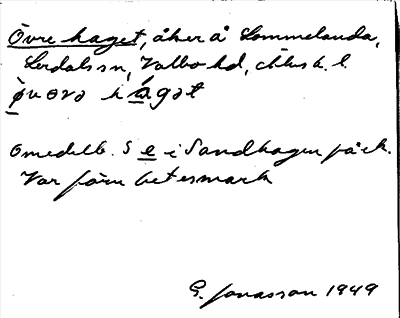 Övre haget, åker å Sommelanda,
Lerdals sn, Valbo hd, Älvsb. l.
ò̱vərə há̱gət
Omedelb. S e i Sandhagen på ek.
Var förr betesmark
G. Jonasson 1949